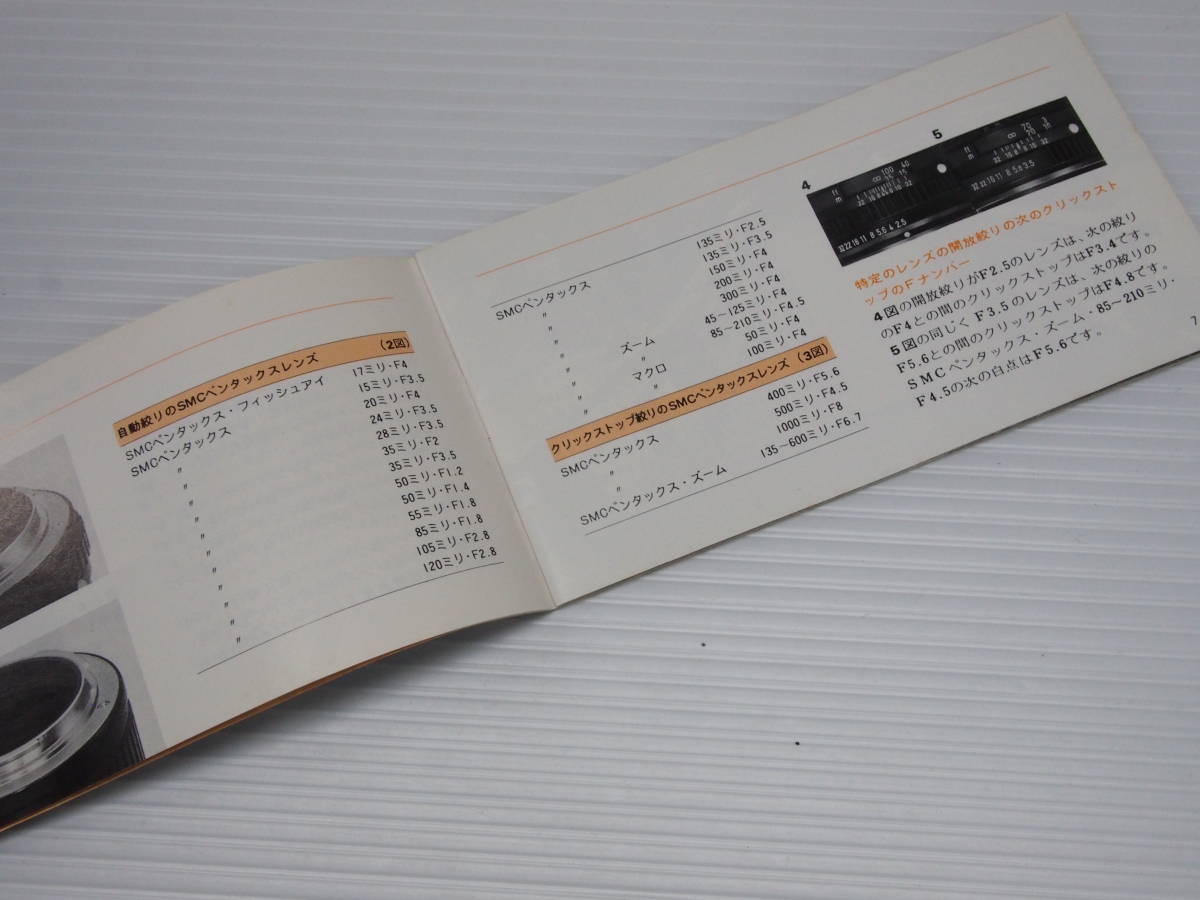 自動絞りのSMCペンタックスレンズ (2図)
SMCペンタックス・フィッシュアイ 17ミリ・F4
SMCペンタックス 15ミリ・F3.5
〃 20ミリ・F4
〃 24ミリ・F3.5
〃 28ミリ・F3.5
〃 35ミリ・F2
〃 35ミリ・F3.5
〃 50ミリ・F1.2
〃 50ミリ・F1.4
〃 55ミリ・F1.8
〃 85ミリ・F1.8
〃 105ミリ・F2.8
〃 120ミリ・F2.8
SMCペンタックス 135ミリ・F2.5
〃 135ミリ・F3.5
〃 150ミリ・F4
〃 200ミリ・F4
〃 300ミリ・F4
〃 ズーム 45〜125ミリ・F4
〃 〃 85〜210ミリ・F4.5
〃 マクロ 50ミリ・F4
〃 〃 100ミリ・F4
クリックストップ絞りのSMCペンタックスレンズ (3図)
SMCペンタックス 400ミリ・F5.6
〃 500ミリ・F4.5
〃 1000ミリ・F8
SMCペンタックス・ズーム 135〜600ミリ・F6.7
4
5
特定のレンズの開放絞りの次のクリックスト
ップのFナンバー
4図の開放絞りがF2.5のレンズは、次の絞り
のF4との間のクリックストップはF3.4です。
5図の同じくF3.5のレンズは、次の絞りの
F5.6との間のクリックストップはF4.8です。
SMCペンタックス・ズーム・85〜210ミリ・
F4.5の次の白点はF5.6です。
7